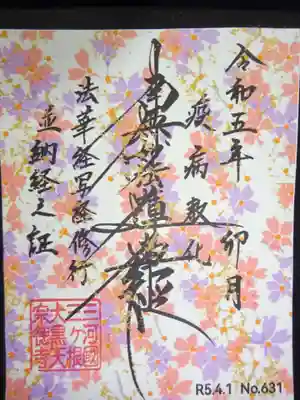 令和五年 卯月
病教化
南無妙法蓮華経
法華経写経修行
並納経之証
三河國
三ヶ根
大黒天
宗徳寺
R5.4.1 No.631